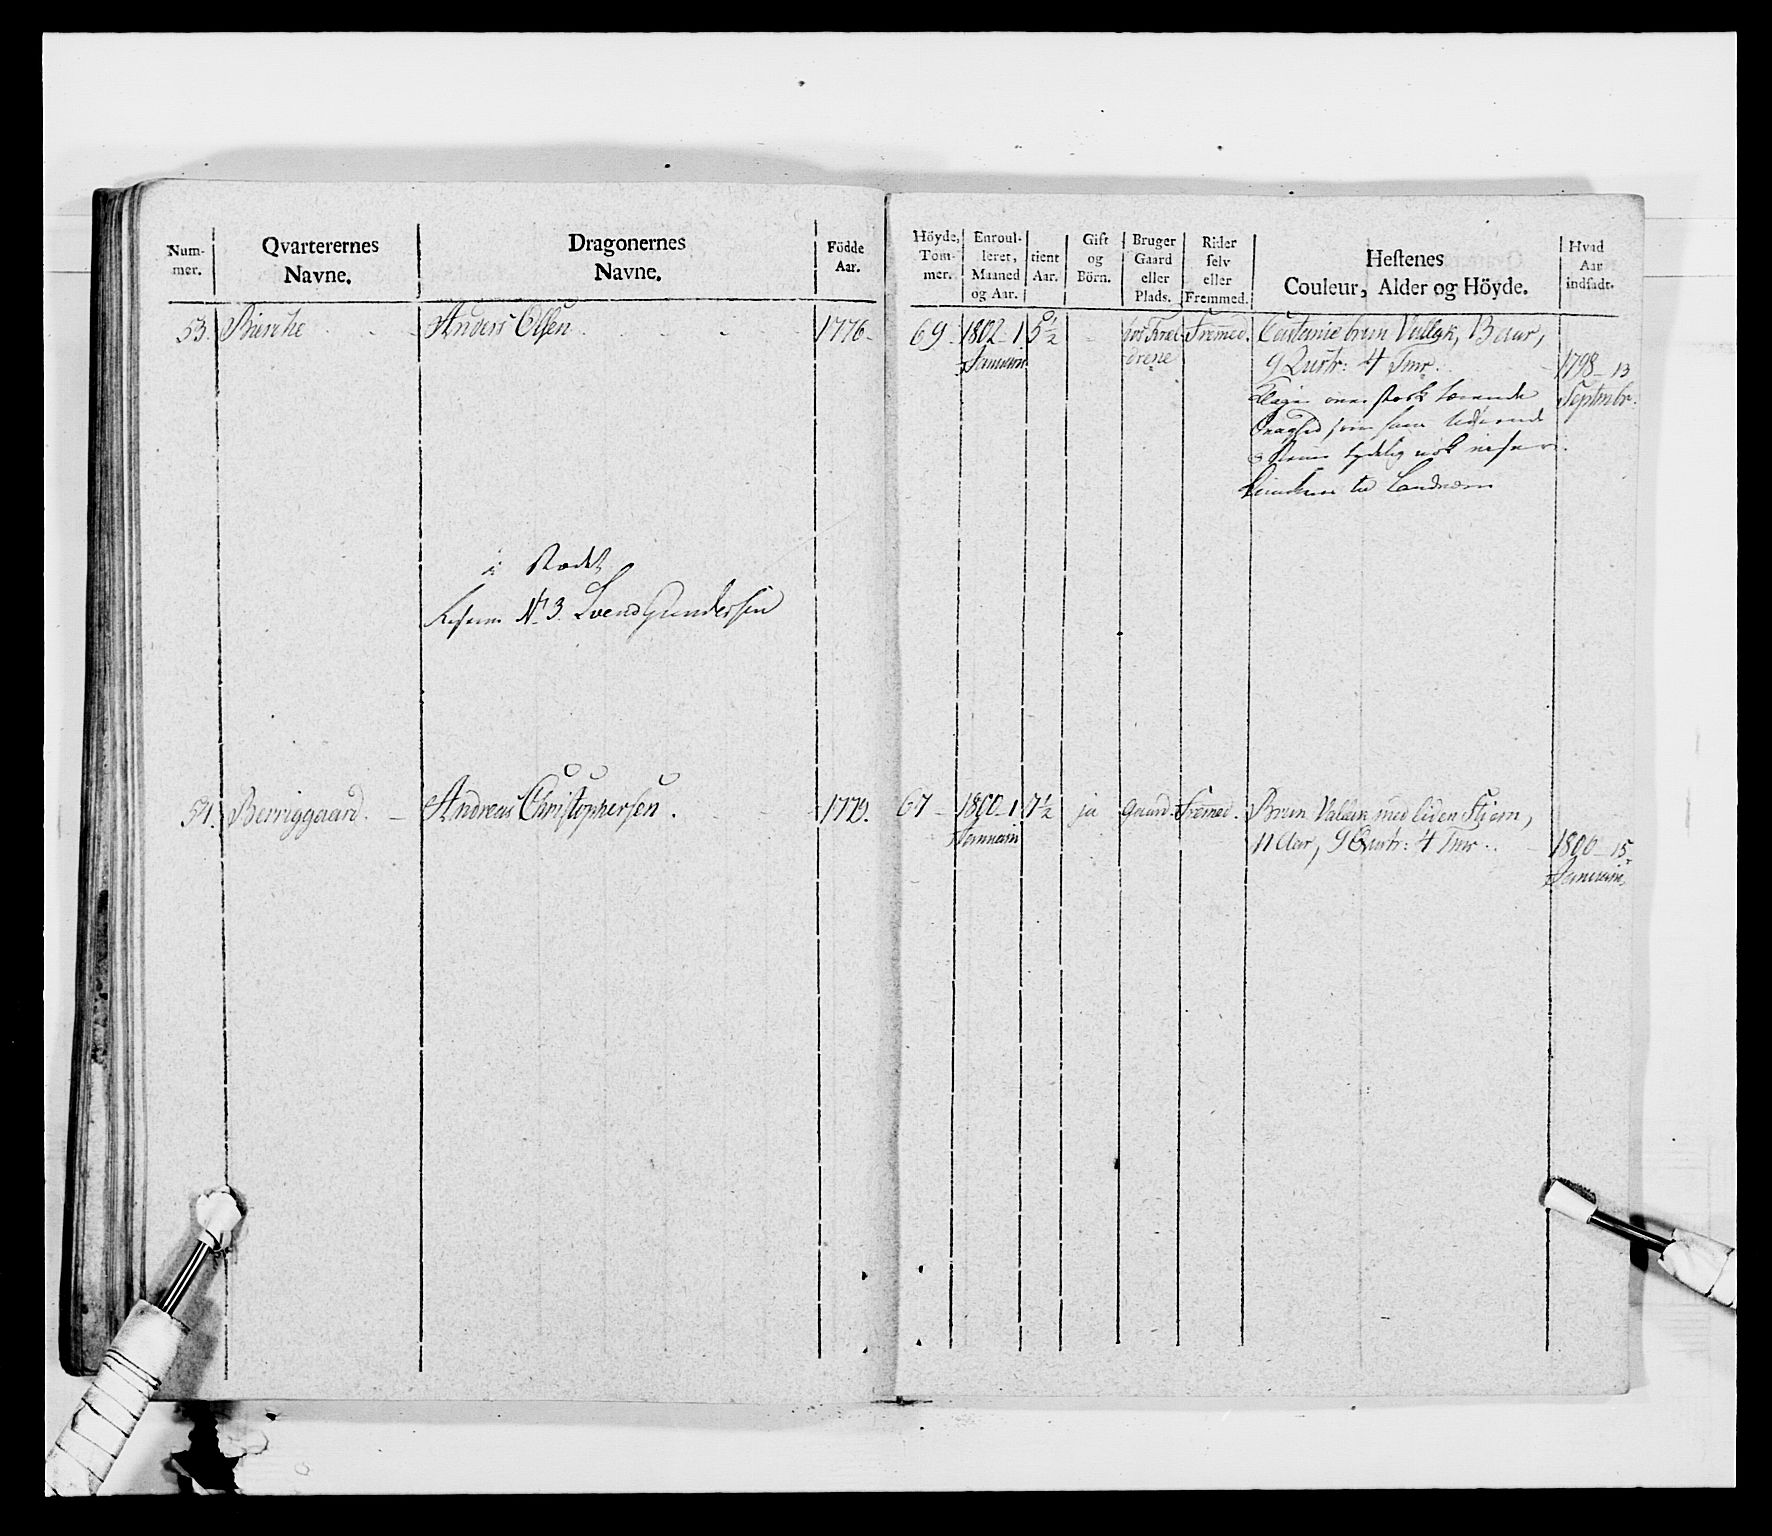 Num-
mer.
Qvarterernes
Navne.
Dragonernes
Navne.
Födde
Aar.
Höyde,
Tom-
mer.
Enroul-
leret,
Maaned
og Aar.
tient
Aar.
Gift
og
Börn.
Bruger
Gaard
eller
Plads.
Rider
selv
eller
Fremmed.
Hestenes
Couleur, Alder og Höyde.
Hvad
Aar
indsadt.
53. Bierche Anders Olsen 1776. 69 1802 1 5½ hos Foræl Fremmed. Castanie brun Vallak, 13 aar,
Januarii ldrene 9 Qvartr: 4 Tmr. 1798 13
Septembr.
tydelig nok
til Landværn
i Stædet
Reserve No 3. Svend Gundersen
54. Berriggaard. Andreas Christophersen. 1779. 67 1800 1 7½ ja Gaard. Fremmed. Brun Vallak med liden Stjern,
Januarii 11 Aar, 9 Qvartr: 4 Tmr. 1800 15
Januarii.